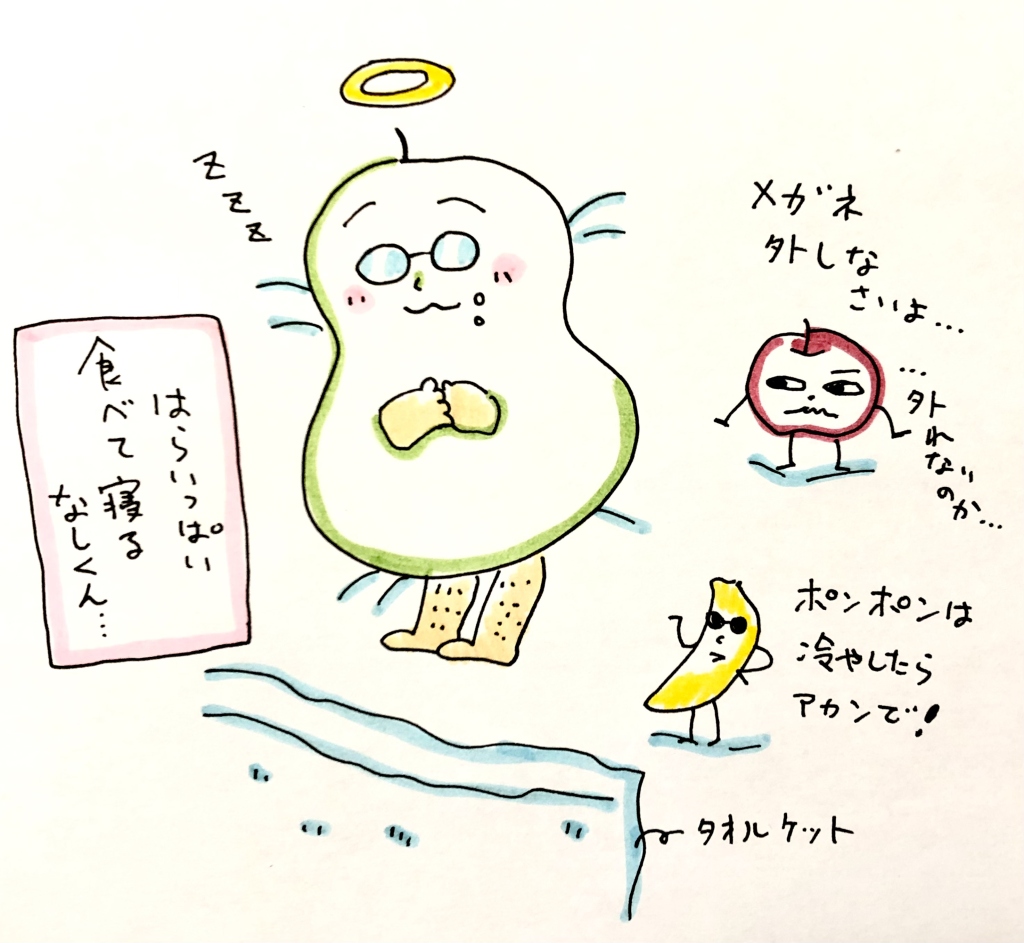 z
z
z
はらいっぱい
食べて寝る
なしくん…
メガネ
外しな
さいよ…
…外れないのか…
ポンポンは
冷やしたら
アカンで!
タオルケット